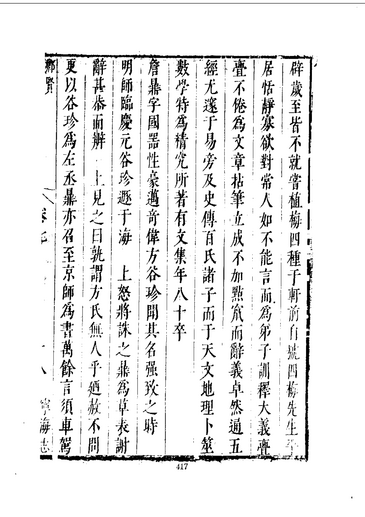 辟歲至皆不就嘗植梅四種于軒前自號四梅先生平
居恬靜寡欲對常人如不能言而為弟子訓釋大義亹
亹不倦為文章拈筆立成不加點竄而辭義卓然通五
經尤邃于易旁及史傳百氏諸子而于天文地理卜筮
數學特為精究所著有文集年八十卒
詹鼎字國器性豪邁奇偉方谷珍聞其名强致之時
明師臨慶元谷珍遯于海 上怒將誅之鼎為草表謝
辭甚恭而辨 上見之曰孰謂方氏無人乎廼赦不問
更以谷珍為左丞鼎亦召至京師為書萬餘言須車駕
鄉賢
寧海志
417